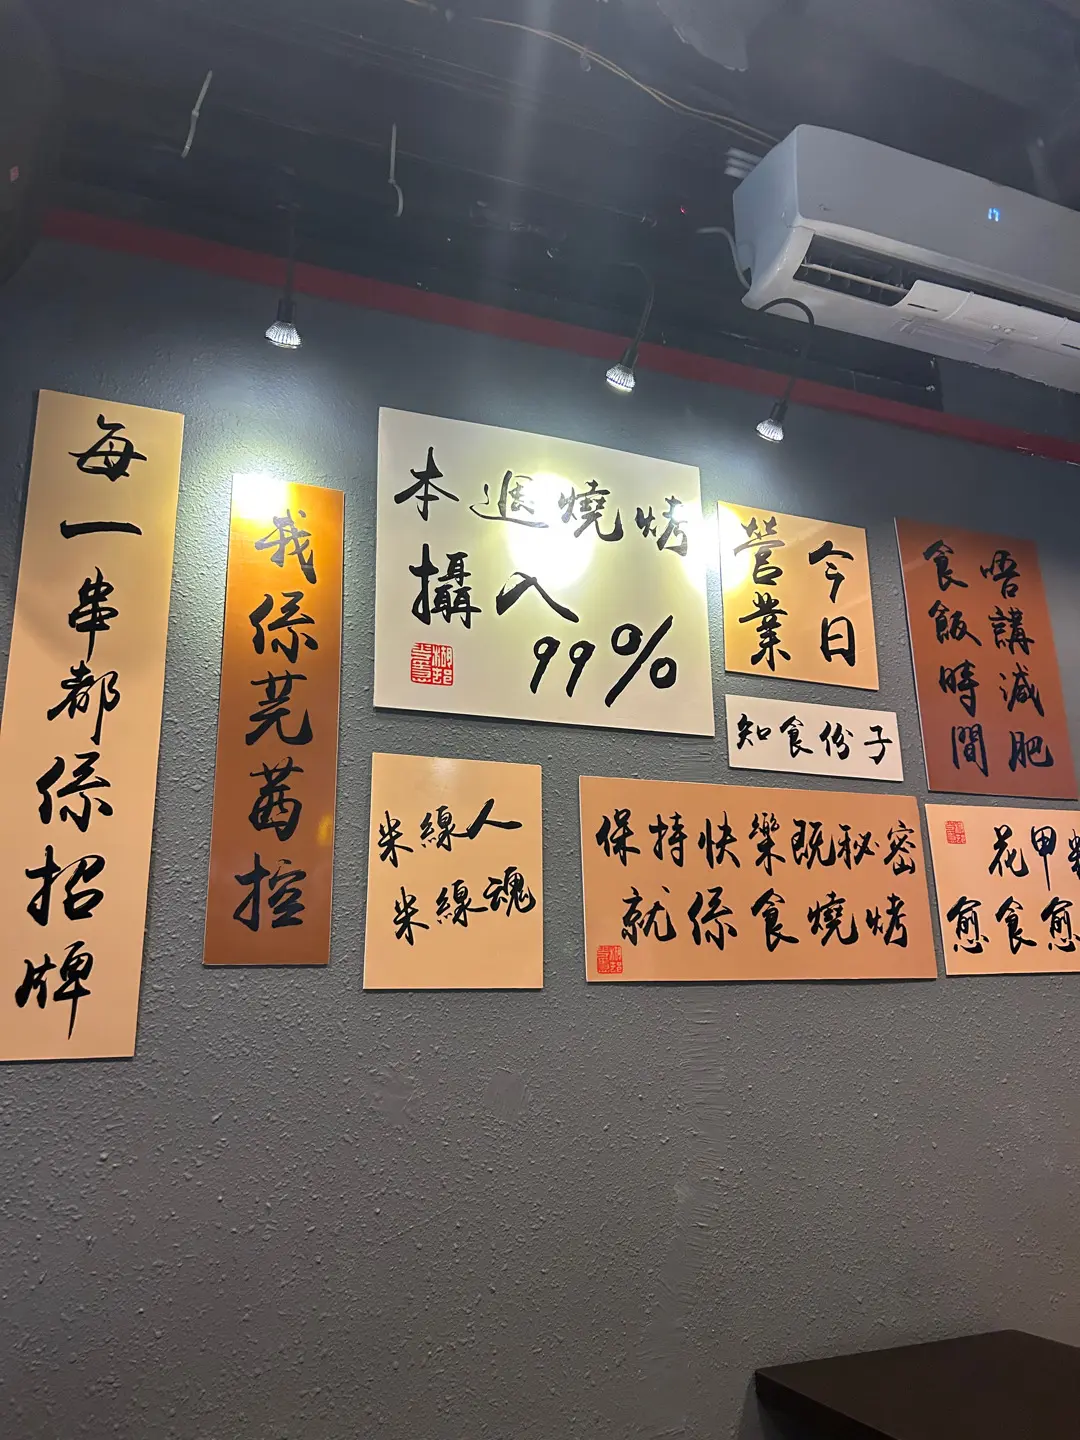 每一串都係招牌
我係芫茜控
本週燒烤
攝入
99%
今日
營業
知食份子
唔講減肥
食飯時間
米線人
米線魂
保持快樂既秘密
就係食燒烤
花甲
愈食愈
17